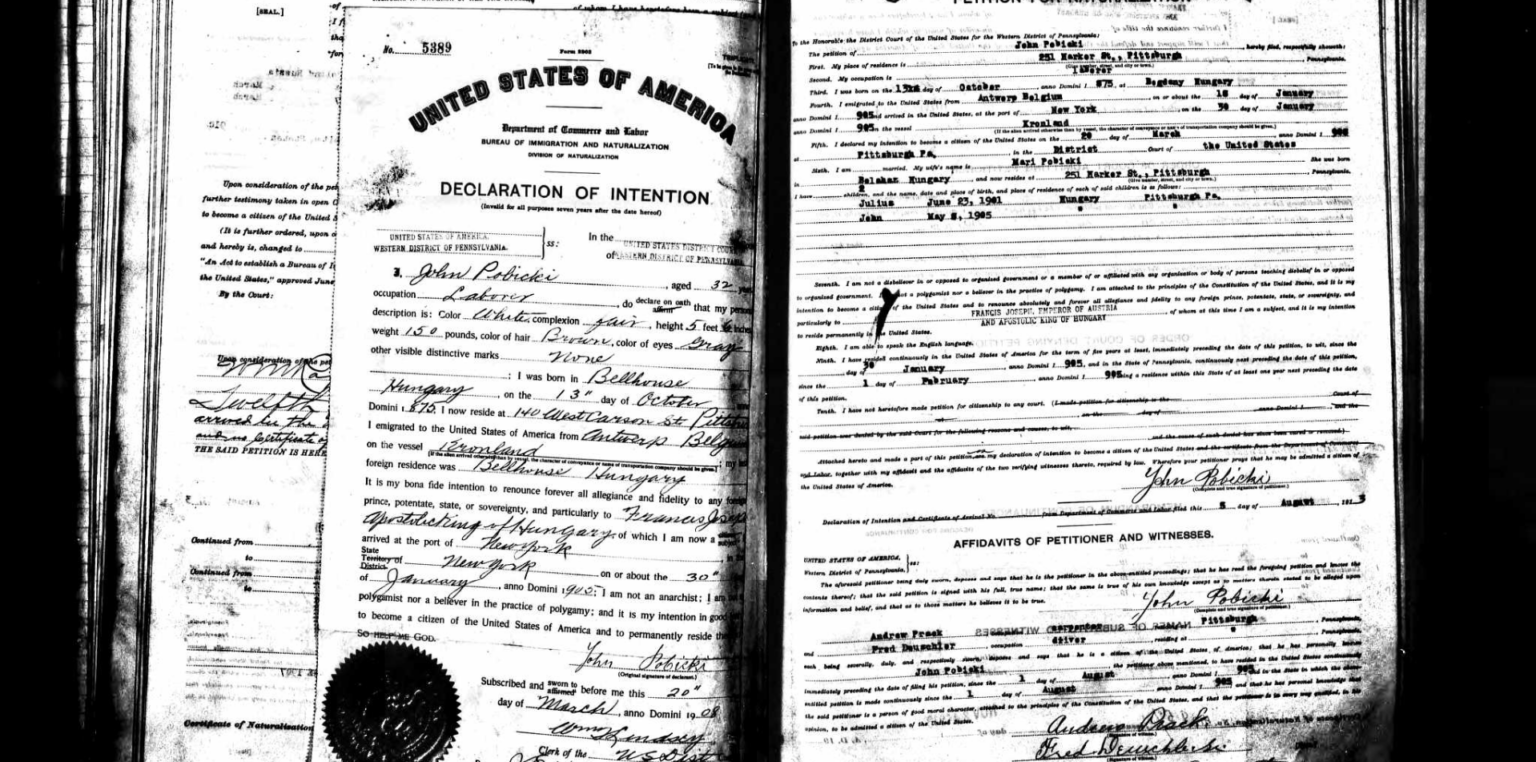 [SEAL.]
Upon consideration of the pe
further testimony taken in open
to become a citizen of the United S
(It is further ordered, upon
and hereby is, changed to
"An Act to establish a Bureau of I
the United States," approved June
By the Court:
Upon consideration of the pet
Twelfth
arrived in the
and no Certificate of
THE SAID PETITION IS HERE
Continued from
to
Continued from
to
Certificate of Naturalization
No. 5389
Form 2203
UNITED STATES OF AMERICA
Department of Commerce and Labor
BUREAU OF IMMIGRATION AND NATURALIZATION
DIVISION OF NATURALIZATION
DECLARATION OF INTENTION
(Invalid for all purposes seven years after the date hereof)
UNITED STATES OF AMERICA.
WESTERN DISTRICT OF PENNSYLVANIA.
ss:
In the UNITED STATES DISTRICT COURT
of WESTERN DISTRICT OF PENNSYLVANIA
I, John Pobicki, aged 32 years
occupation Laborer, do declare on oath affirm that my person
description is: Color White, complexion fair, height 5 feet 6 inches
weight 150 pounds, color of hair Brown, color of eyes Gray
other visible distinctive marks None
; I was born in Bellhouse
Hungary, on the 13" day of October
Domini 1875; I now reside at 140 West Carson St Pittsb
I emigrated to the United States of America from Antwerp Belg
on the vessel Kronland
(If the alien arrived otherwise than by vessel, the character of conveyance or name of transportation company should be given.)
foreign residence was Bellhouse Hungary
It is my bona fide intention to renounce forever all allegiance and fidelity to any foreign
prince, potentate, state, or sovereignty, and particularly to Francis Joseph
Apostolic King of Hungary, of which I am now a
arrived at the port of New York
State Territory District of New York on or about the 30"
of January, anno Domini 1905; I am not an anarchist; I am
polygamist nor a believer in the practice of polygamy; and it is my intention in good
to become a citizen of the United States of America and to permanently reside the
SO HELP ME GOD.
John Pobicki
(Original signature of declarant.)
Subscribed and sworn to affirmed before me this 20"
day of March, anno Domini 1908
Wm Lindsey
Clerk of the U S Dist
PETITION FOR NATURALIZATION
To the Honorable the District Court of the United States for the Western District of Pennsylvania:
The petition of John Pobicki, hereby filed, respectfully showeth:
First. My place of residence is 251 Marker St., Pittsburgh, Pennsylvania.
(Give number, street, and city or town.)
Second. My occupation is laborer
Third. I was born on the 13th day of October, anno Domini 1 875, at Begdeny Hungary
Fourth. I emigrated to the United States from Antwerp Belgium, on or about the 18 day of January
anno Domini 1 905 and arrived in the United States, at the port of New York, on the 30 day of January
anno Domini 1 905 on the vessel Kronland
(If the alien arrived otherwise than by vessel, the character of conveyance or name of transportation company should be given.)
Fifth. I declared my intention to become a citizen of the United States on the 20 day of March anno Domini 1 908
at Pittsburgh Pa. in the District Court of the United States
Sixth. I am married. My wife's name is Mari Pobicki She was born
in Belakaz Hungary and now resides at 251 Marker St., Pittsburgh, Pennsylvania.
I have 2 children, and the name, date and place of birth, and place of residence of each of said children is as follows:
Julius June 23, 1901 Hungary Pittsburgh Pa.
John May 8, 1905 " "
Seventh. I am not a disbeliever in or opposed to organized government or a member of or affiliated with any organization or body of persons teaching disbelief in or opposed
to organized government. I am not a polygamist nor a believer in the practice of polygamy. I am attached to the principles of the Constitution of the United States, and it is my
intention to become a citizen of the United States and to renounce absolutely and forever all allegiance and fidelity to any foreign prince, potentate, state, or sovereignty, and
particularly to FRANCIS JOSEPH, EMPEROR OF AUSTRIA AND APOSTOLIC KING OF HUNGARY of whom at this time I am a subject, and it is my intention
to reside permanently in the United States.
Eighth. I am able to speak the English language.
Ninth. I have resided continuously in the United States of America for the term of five years at least, immediately preceding the date of this petition, to wit, since the
30 day of January anno Domini 1 905, and in the State of Pennsylvania, continuously next preceding the date of this petition,
since the 1 day of February anno Domini 1 905 being a residence within this State of at least one year next preceding the date
of this petition.
Tenth. I have not heretofore made petition for citizenship to any court. (I made petition for citizenship to the Court of
on the day of anno Domini 1 and the
said petition was denied by the said Court for the following reasons and causes, to wit,
and the cause of such denial has since been cured or removed)
Attached hereto and made a part of this petition are my declaration of intention to become a citizen of the United States and the certificate from the Department of Commerce
and Labor, together with my affidavit and the affidavits of the two verifying witnesses thereto, required by law. Wherefore your petitioner prays that he may be admitted a citizen of
the United States of America.
John Pobicki
(Complete and true signature of petitioner.)
Declaration of Intention and Certificate of Arrival No. from Department of Commerce and Labor filed this 5 day of August, 191 3
AFFIDAVITS OF PETITIONER AND WITNESSES.
UNITED STATES OF AMERICA,
Western District of Pennsylvania,
ss:
The aforesaid petitioner being duly sworn, deposes and says that he is the petitioner in the above-entitled proceedings; that he has read the foregoing petition and knows the
contents thereof; that the said petition is signed with his full, true name; that the same is true of his own knowledge except as to matters therein stated to be alleged upon
information and belief, and that as to those matters he believes it to be true.
John Pobicki
(Complete and true signature of petitioner.)
Andrew Prack carpenter Pittsburgh, Pennsylvania,
and Fred Deuschler occupation driver, residing at " Pennsylvania,
each being severally, duly, and respectively sworn, deposes and says that he is a citizen of the United States of America; that he has personally known
John Pobicki the petitioner above mentioned, to have resided in the United States continuously
immediately preceding the date of filing his petition, since the 1 day of August anno Domini 1 905
entitled petition is made continuously since the 1 day of August anno Domini 1 905
the said petitioner is a person of good moral character, attached to the principles of the Constitution of the United States
opinion, to be admitted a citizen of the United States.
Andrew Prack
Fred Deuschler